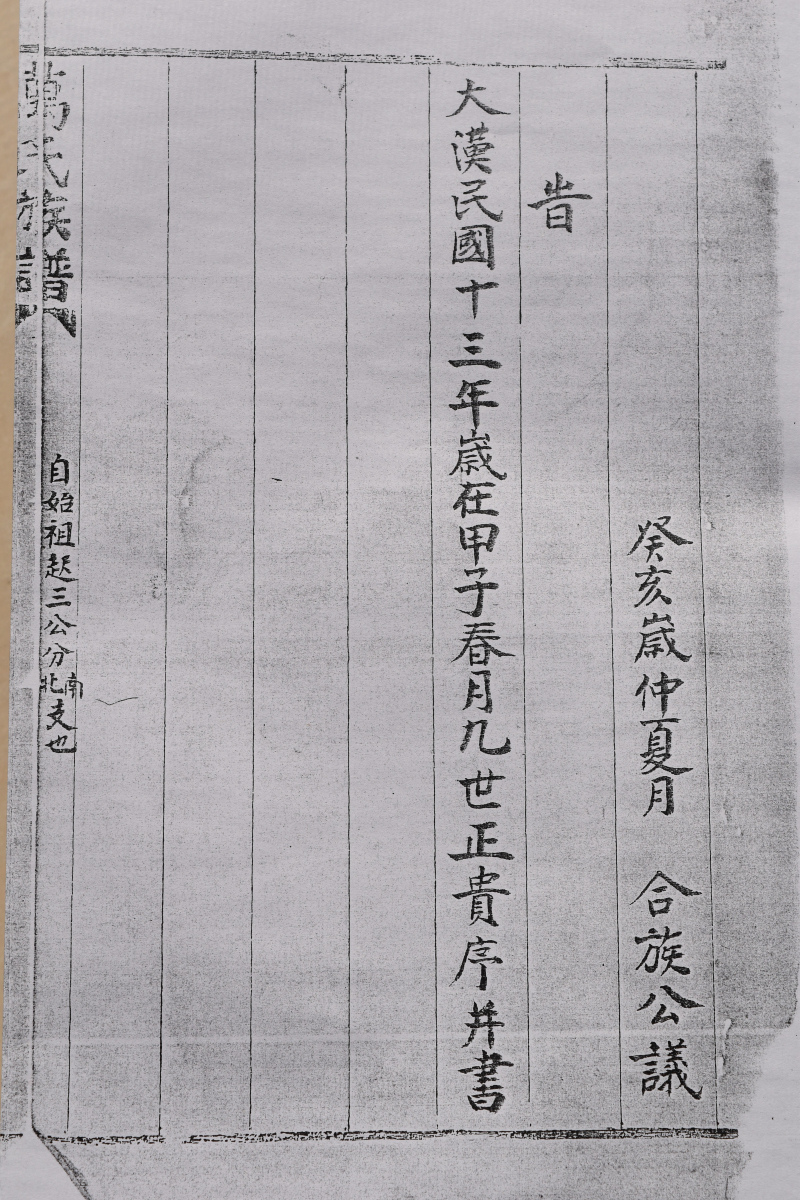 癸亥歲仲夏月 合族公議
旹
大漢民國十三年歲在甲子春月九世正貴序并書
萬氏族譜
自始祖起三公分南北支也